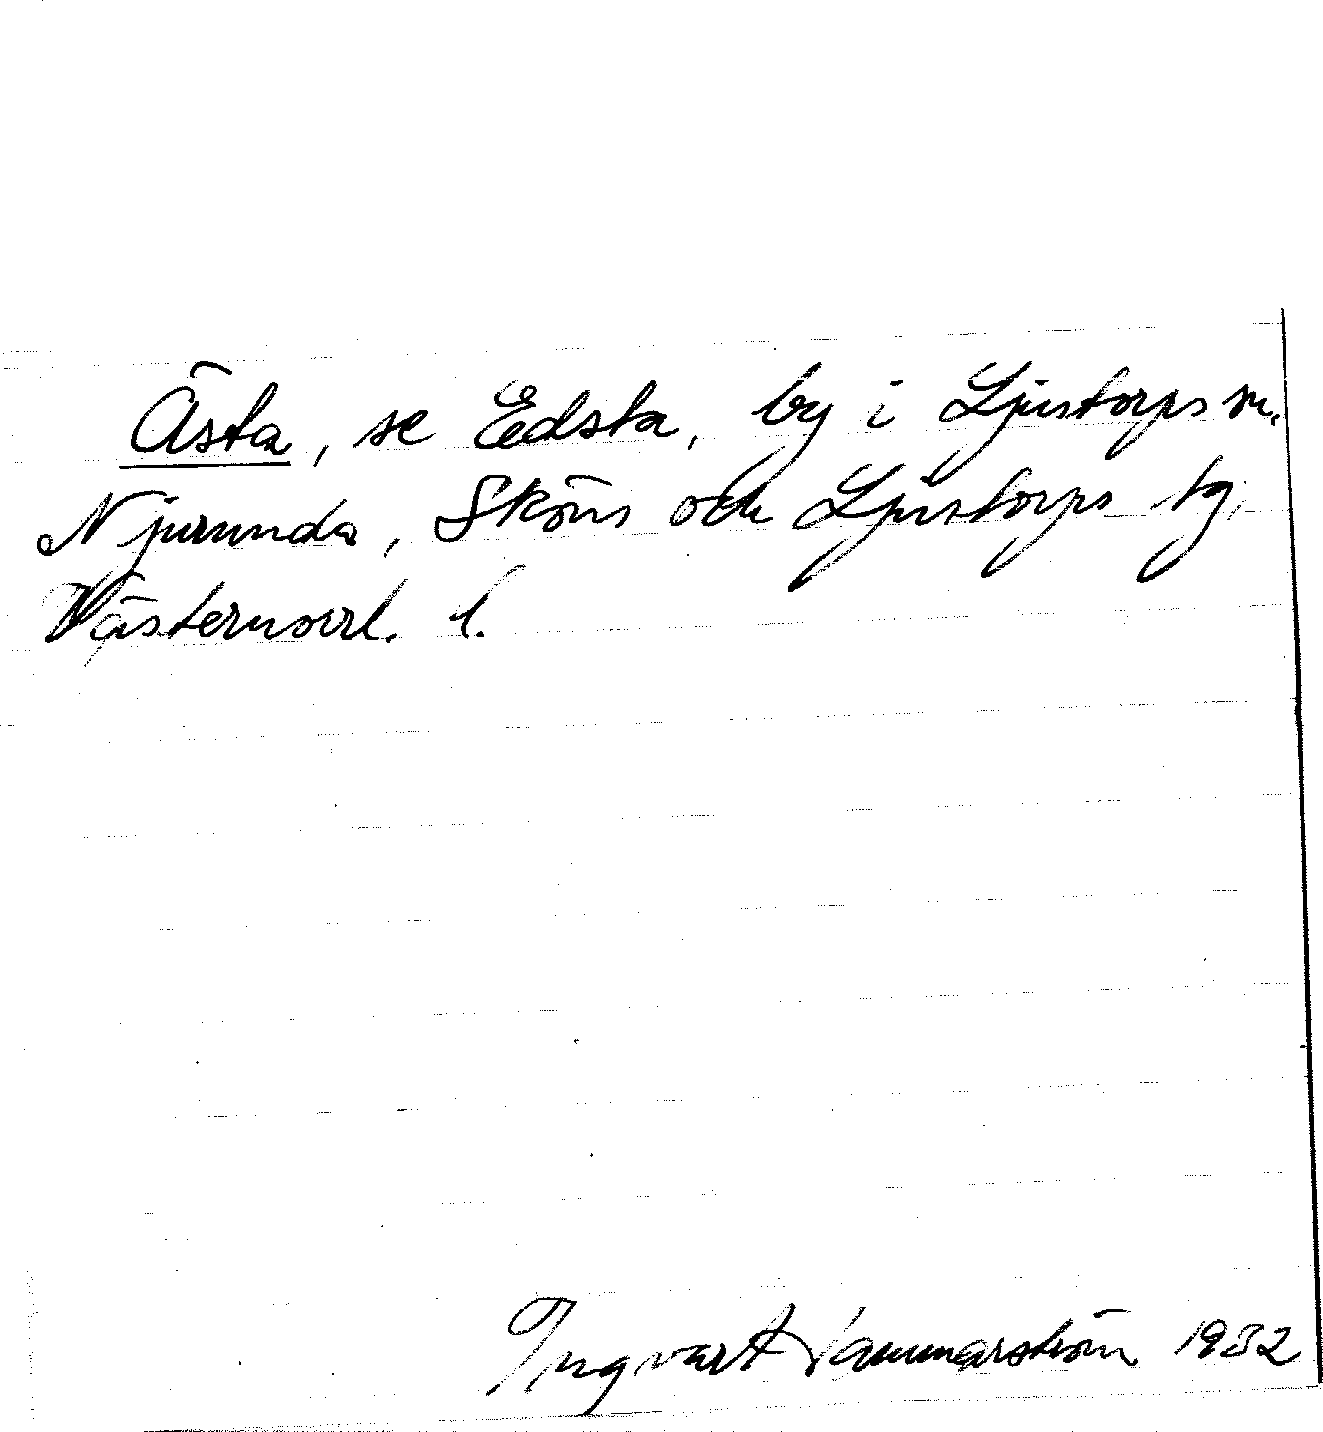 Ästa, se Edsta, by i Ljustorps sn.
Njurunda, Sköns och Ljustorps tg,
Västernorrl. l.
Ingvart Hammarström 1932